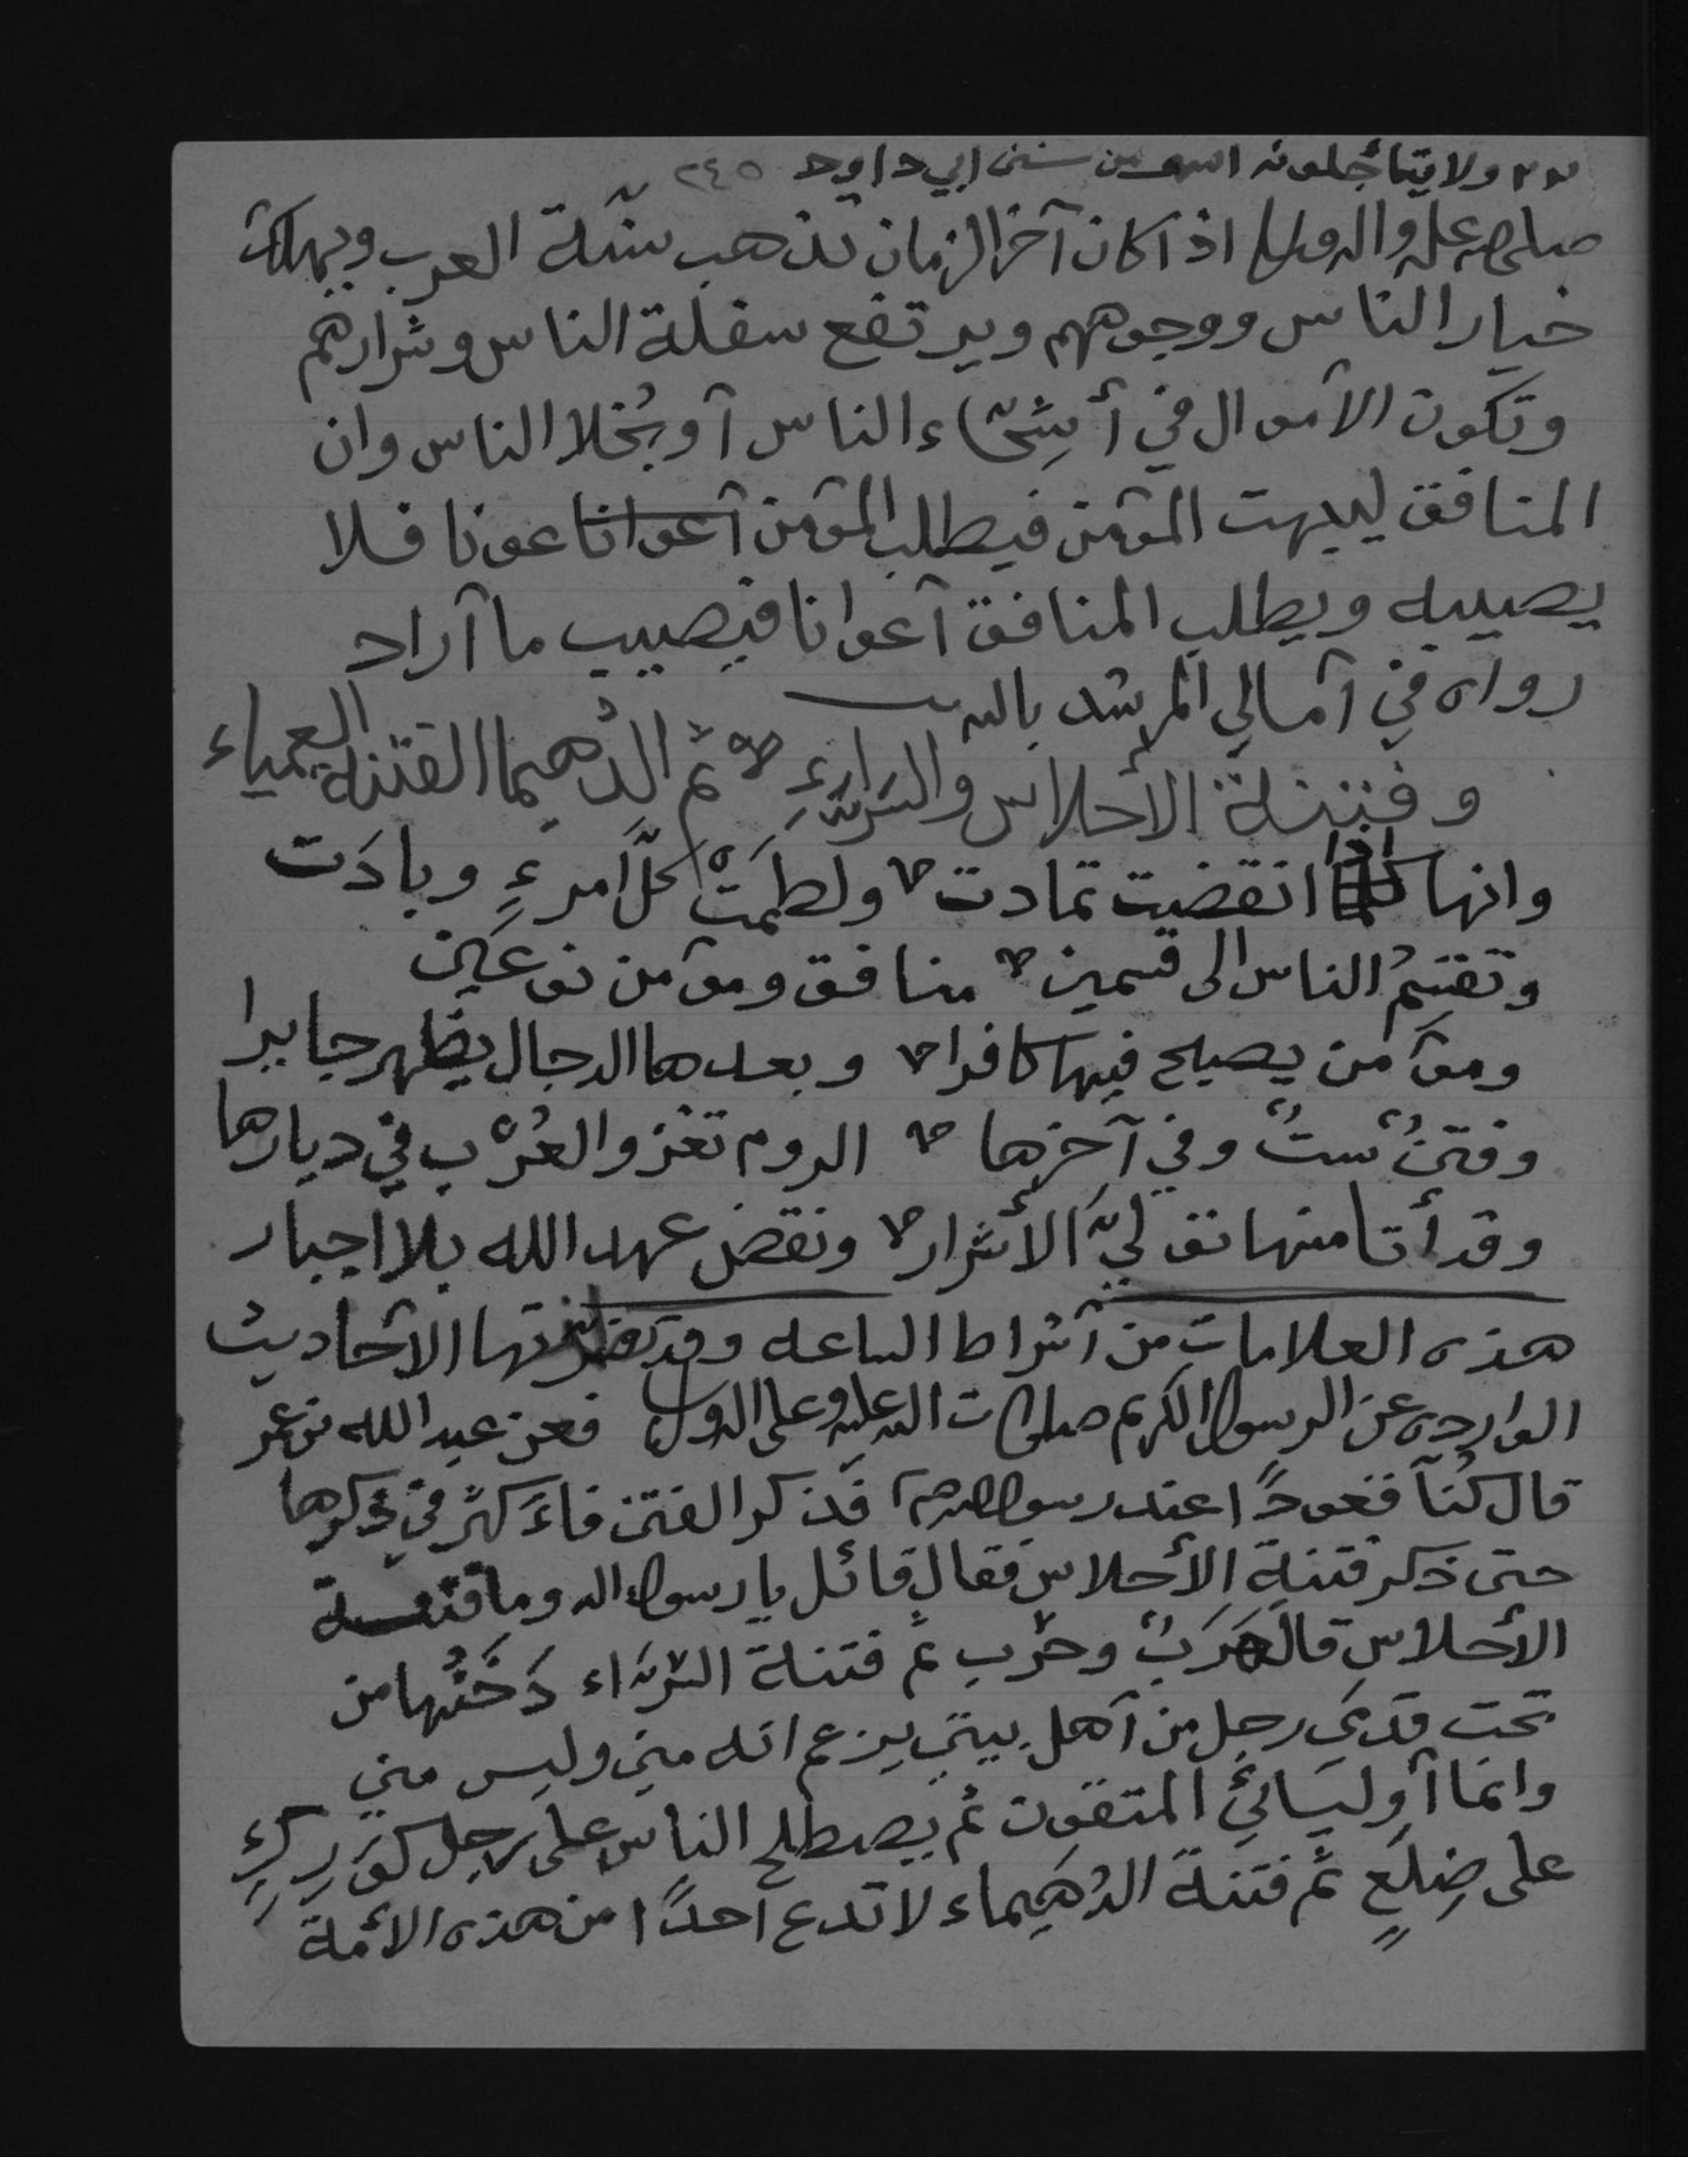 ولا يتأجلونه اسو من سنن ابي داود ٢٤٥
صلى الله عليه واله وسلم اذا كان آخر الزمان تذهب سنّة العرب ويهلك
خيار الناس ووجوههم ويرتفع سفلة الناس وشرارهم
وتكون الأموال في أشِحّاء الناس أو بُخلا الناس وان
المنافق ليبهت المؤمن فيطلب المؤمن أعوانا عونا فلا
يصيبه ويطلب المنافق أعوانا فيصيب ما أراد
رواه في أمالي المرشد بالله
وفتنة الأحلاس والسرّاءِ ثم الدُهيما الفتنه العمياء
وانها اذا انقضيت تمادت ولطمَتْ كلَّ امرءٍ وبادَت
وتقسِمُ الناس الى قسمين منافق ومؤمن نوعَين
ومؤمن يصبح فيها كافرا وبعدها الدجال يظهر جايرا
وفتنٌ ستٌ وفي آخرها الروم تغزو العُرْب في ديارها
وقد أتا منها تولّي الأشرار ونقض عهد الله بلا اجبار
هذه العلامات من أشراط الساعه وقد تضمنتها الأحاديث
الوارده عن الرسول الكريم صلوات الله عليه وعلى اله وسلم فعن عبد الله بن عمر
قال كُنّا قعودًا عند رسول الله صلى فذكر الفتن فأكثر في ذكرها
حتى ذكر فتنة الأحلاس فقال قائل يا رسول الله وما فتنة
الأحلاس قال هَرَبٌ وحرْب ثم فتنة السرّاء دَخَنُها من
تحت قدمَي رجل من أهل بيتي يزعم انه مني وليس مني
وانما أوليائيَ المتقون ثم يصطلح الناس على رجل كَوَرِكٍ
على ضِلَعٍ ثم فتنة الدُهَيماء لا تدع أحدًا من هذه الأمة